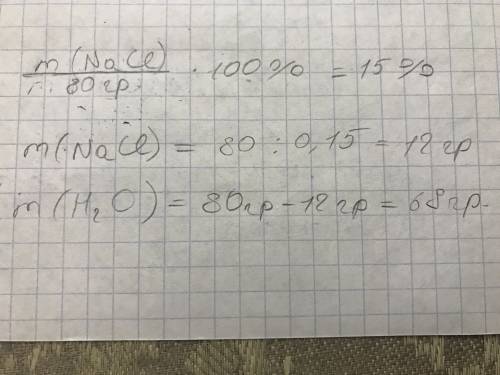 m(NaCl)/80гр · 100% = 15%
m(NaCl) = 80 : 0,15 = 12гр
m(H₂O) = 80гр - 12гр = 68гр.